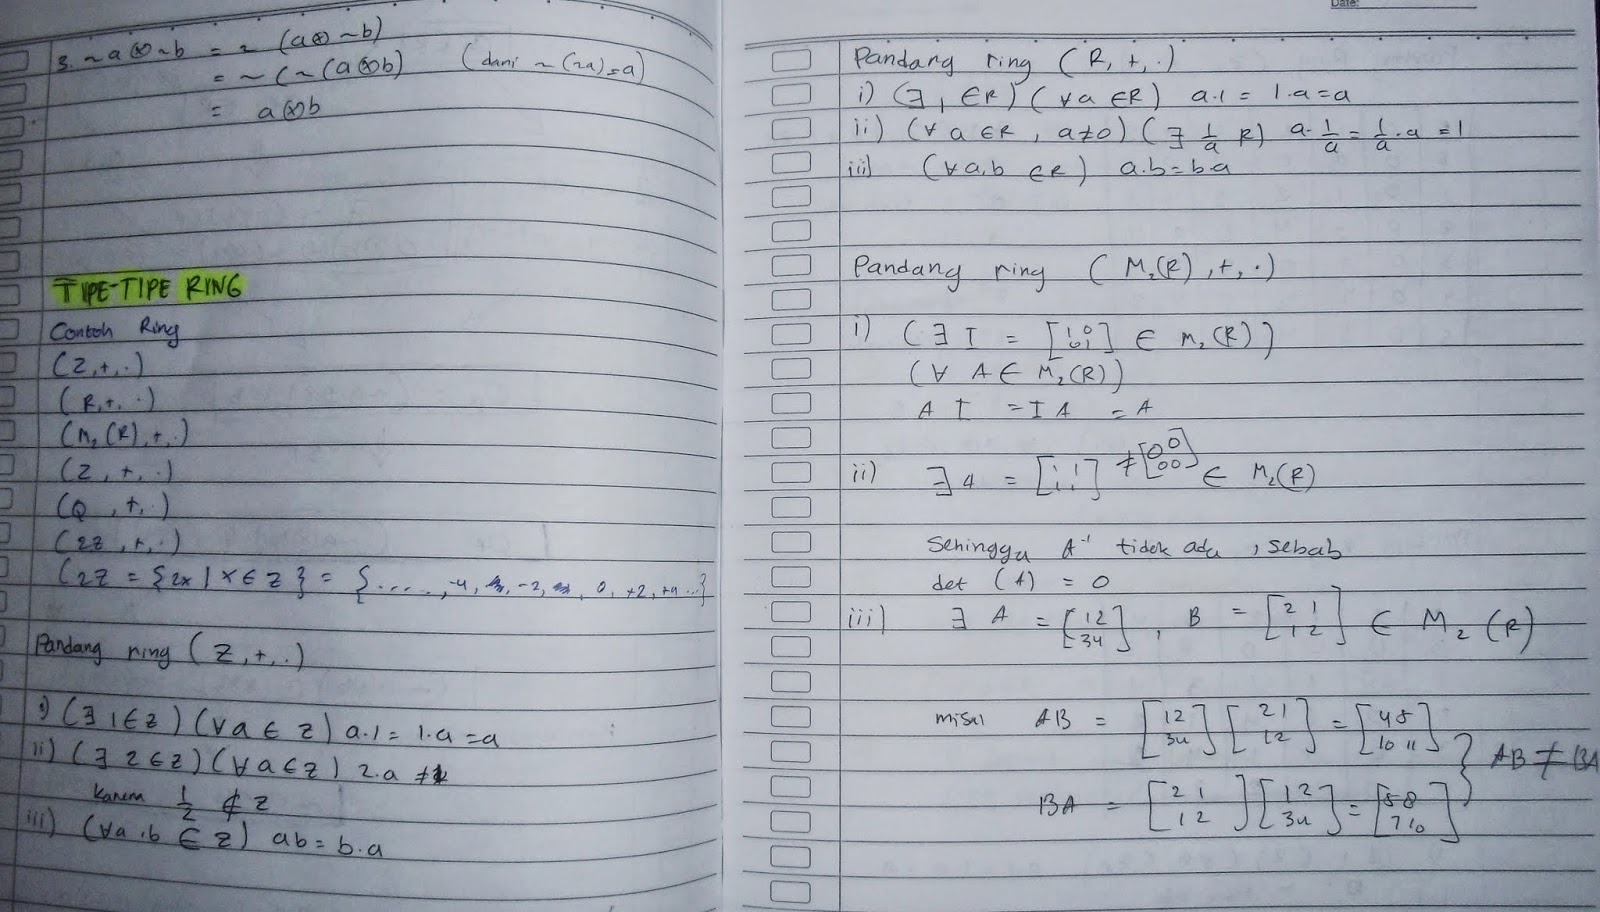 3. ~a⊗~b = ~(a⊗~b)
= ~(~(a⊗b) (dari ~(~a)=a)
= a⊗b
TIPE-TIPE RING
Contoh Ring
(Z,+,·)
(R,+,·)
(M₂(R),+,·)
(Z,+,·)
(Q,+,·)
(2Z,+,·)
(2Z = {2x | x ∈ Z} = {....., -4, -2, 0, +2, +4...}
Pandang ring (Z,+,·)
i) (∃ 1 ∈ Z) (∀a ∈ Z) a.1 = 1.a = a
ii) (∃ 2 ∈ Z) (∀a ∈ Z) 2.a ≠ 1
karena 1/2 ∉ Z
iii) (∀a,b ∈ Z) ab = b.a
Date:
Pandang ring (R,+,·)
i) (∃ 1 ∈ R) (∀a ∈ R) a.1 = 1.a = a
ii) (∀ a ∈ R, a≠0) (∃ 1/a R) a. 1/a = 1/a . a = 1
iii) (∀ a,b ∈ R) a.b = b.a
Pandang ring (M₂(R),+,·)
i) (∃ I = [1 0 / 0 1] ∈ M₂(R))
(∀ A ∈ M₂(R))
A I = I A = A
ii) ∃ A = [1 1 / 1 1] ≠ [0 0 / 0 0] ∈ M₂(R)
Sehingga A⁻¹ tidak ada, sebab
det (A) = 0
iii) ∃ A = [1 2 / 3 4], B = [2 1 / 1 2] ∈ M₂(R)
misal AB = [1 2 / 3 4] [2 1 / 1 2] = [4 5 / 10 11]
} AB ≠ BA
BA = [2 1 / 1 2] [1 2 / 3 4] = [5 8 / 7 10]